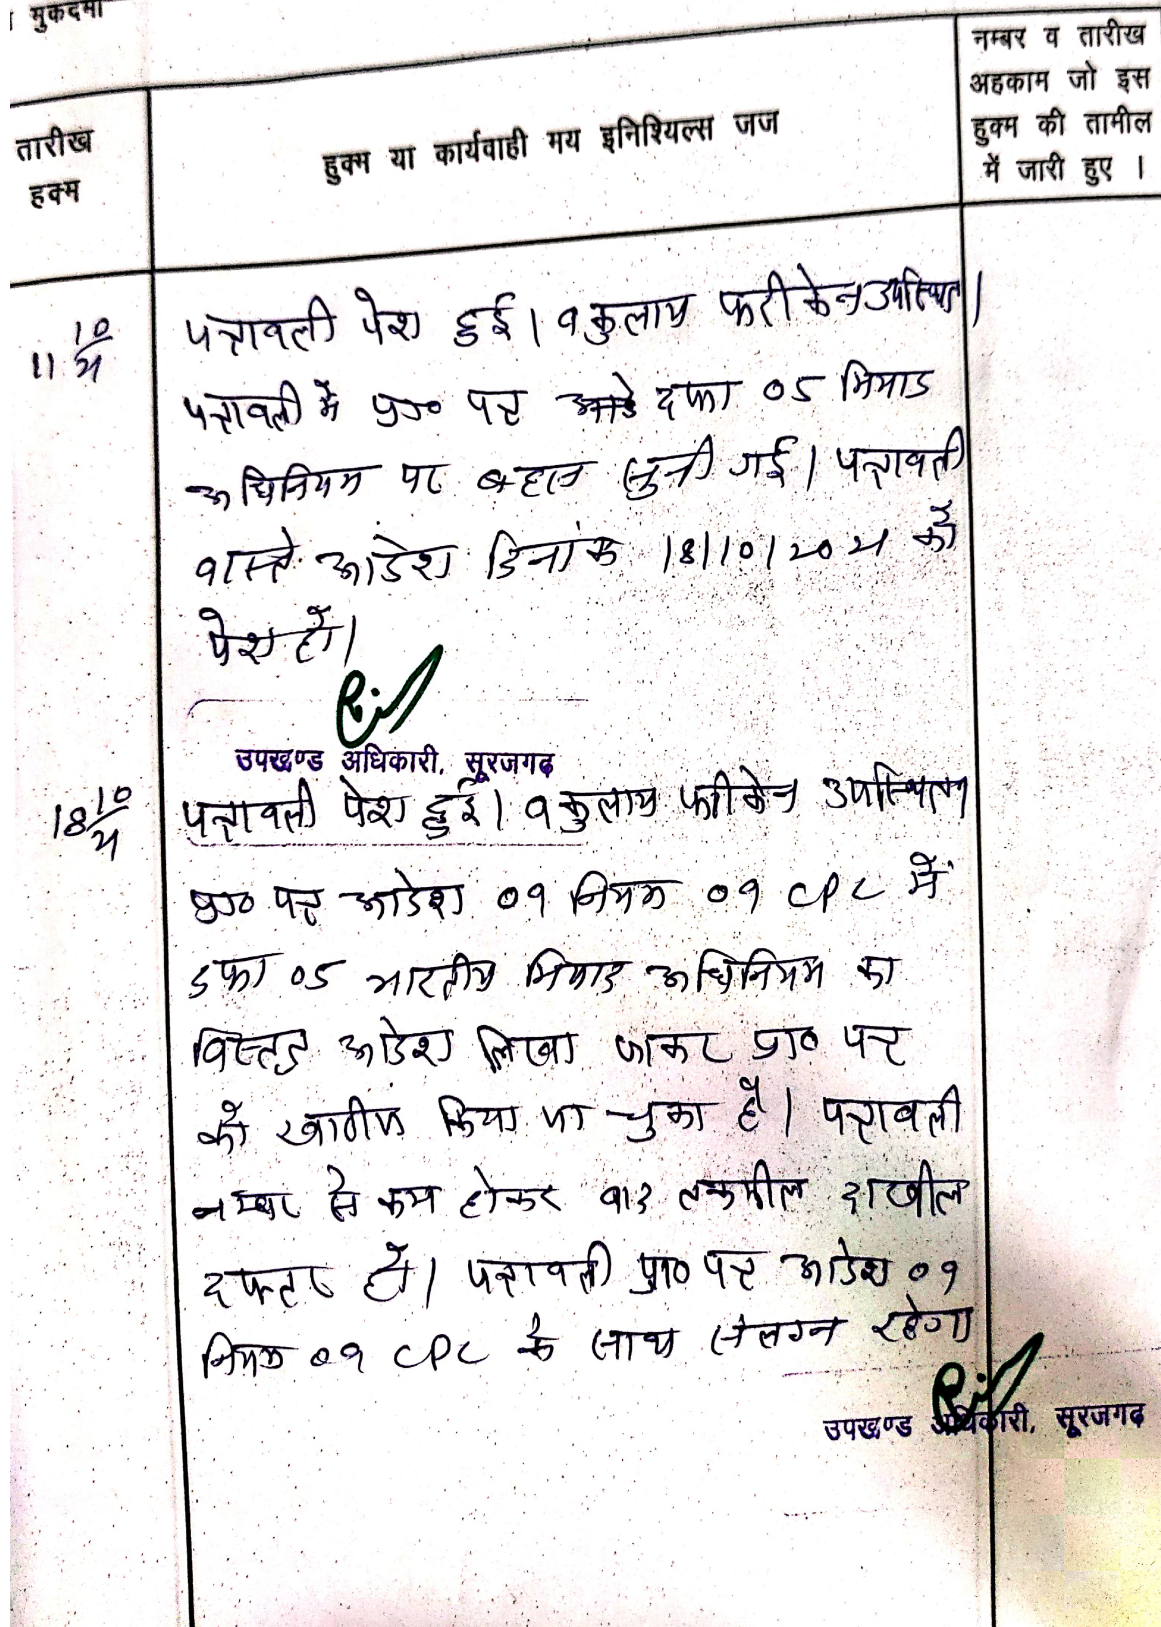 मुकदमा
तारीख
हक्म
हुक्म या कार्यवाही मय इनिश्यिल्स जज
नम्बर व तारीख
अहकाम जो इस
हुक्म की तामील
में जारी हुए ।
11 10/24
पत्रावली पेश हुई। वकुलाय फरीकेन उपस्थित।
पत्रावली में प्रा० पत्र दफा 05 मियाद
अधिनियम पर बहस सुनी गई। पत्रावली
वास्ते आदेश दिनांक 18/10/2024 को
पेश हो।
उपखण्ड अधिकारी, सूरजगढ़
18 10/24
पत्रावली पेश हुई। वकुलाय फरीकेन उपस्थित।
प्रा० पत्र आदेश 09 नियम 09 CPC में
दफा 05 भारतीय मियाद अधिनियम का
विस्तृत आदेश लिखा जाकर प्रा० पत्र
को खारीज किया जा चुका है। पत्रावली
नम्बर से कम होकर बाद तकमील दाखील
दफ्तर हो। पत्रावली प्रा० पत्र आदेश 09
नियम 09 CPC के साथ संलग्न रहेगा
उपखण्ड अधिकारी, सूरजगढ़